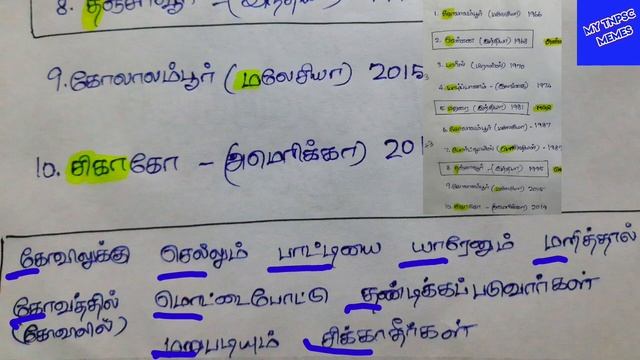 8. தஞ்சாவூர் - (இந்தியா)
9. கோலாலம்பூர் (மலேசியா) 2015
10. சிகாகோ - (அமெரிக்கா) 201
கோவிலுக்கு செல்லும் பாட்டியை யாரேனும் மறித்தால்
கோவத்தில் மொட்டைபோட்டு தண்டிக்கப்படுவார்கள்
(கோவலில்)
மறுபடியும் சிக்காதீர்கள்
1. கோலாலம்பூர் (மலேசியா) 1966
2. சென்னை (இந்தியா) 1968
3. பாரிஸ் (பிரான்ஸ்) 1970
4. யாழ்ப்பாணம் - (இலங்கை) 1974
5. மதுரை (இந்தியா) 1981
6. கோலாலம்பூர் (மலேசியா) - 1987
7. மொரீசியஸ் - 1989
8. தஞ்சாவூர் - (இந்தியா) - 1995
9. கோலாலம்பூர் (மலேசியா) - 2015
10. சிகாகோ - (அமெரிக்கா) - 2019
MY TNPSC
MEMES